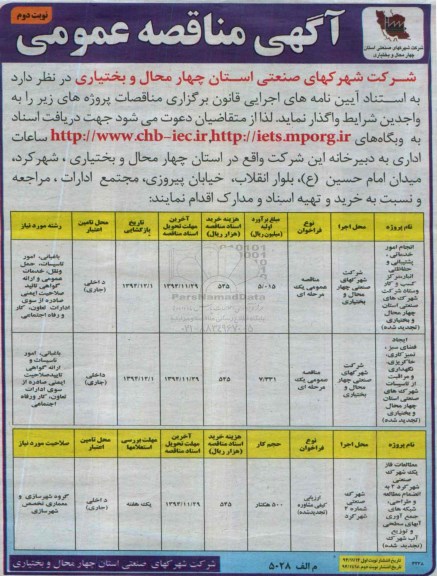 نوبت دوم
آگهی مناقصه عمومی
شرکت شهرکهای صنعتی استان
چهار محال و بختیاری
شرکت شهرکهای صنعتی استان چهار محال و بختیاری در نظر دارد
به استناد آیین نامه های اجرایی قانون برگزاری مناقصات پروژه های زیر را به
واجدین شرایط واگذار نماید. لذا از متقاضیان دعوت می شود جهت دریافت اسناد
به وبگاه‌های http://www.chb-iec.ir,http://iets.mporg.ir ساعات
اداری به دبیرخانه این شرکت واقع در استان چهار محال و بختیاری ، شهرکرد،
میدان امام حسین (ع)، بلوار انقلاب، خیابان پیروزی، مجتمع ادارات ، مراجعه
و نسبت به خرید و تهیه اسناد و مدارک اقدام نمایند:
نام پروژه محل اجرا نوع فراخوان مبلغ برآورد اولیه (میلیون ریال) هزینه خرید اسناد مناقصه (هزار ریال) آخرین مهلت تحویل اسناد مناقصه تاریخ بازگشایی محل تامین اعتبار رشته مورد نیاز
انجام امور خدماتی، پشتیبانی و حفاظتی
شرکت شهرکهای صنعتی چهار محال و بختیاری
مناقصه عمومی یک مرحله ای
۵/۰۱۵ ۵۴۵ ۱۳۹۴/۱۱/۲۹ ۱۳۹۴/۱۲/۱ داخلی (جاری)
باغبانی، امور تاسیسات، حمل ونقل، خدمات عمومی و ارائه گواهی تائید صلاحیت ایمنی صادره از سوی ادارات تعاون، کار و رفاه اجتماعی
ایجاد فضای سبز، تمیزکاری، خاکریزی، نگهداری و مراقبت از تاسیسات شهرک های صنعتی استان چهار محال و بختیاری (تجدید شده)
شرکت شهرکهای صنعتی چهار محال و بختیاری
مناقصه عمومی یک مرحله ای
۷/۳۳۱ ۵۴۵ ۱۳۹۴/۱۱/۲۹ ۱۳۹۴/۱۲/۱ داخلی (جاری)
باغبانی، امور تاسیسات و ارائه گواهی تاییدصلاحیت ایمنی صادره از سوی ادارات تعاون، کار ورفاه اجتماعی
نام پروژه محل اجرا نوع فراخوان حجم کار هزینه خرید اسناد مناقصه (هزار ریال) آخرین مهلت تحویل اسناد مناقصه مهلت بررسی استعلامها محل تامین اعتبار صلاحیت مورد نیاز
مطالعات فاز یک شهرک صنعتی شهرکرد ۲ به انضمام مطالعه و طراحی، شبکه های جمع آوری آبهای سطحی و توزیع آب شهرک (تجدید شده)
شهرک صنعتی شماره ۲ شهرکرد
ارزیابی کیفی مشاوره (تجدیدشده)
۵۰۰ هکتار ۵۴۵ ۱۳۹۴/۱۱/۲۹ یک هفته داخلی (جاری)
گروه شهرسازی و معماری تخصص شهرسازی
م الف ۵۰۲۸
شرکت شهرکهای صنعتی استان چهار محال و بختیاری